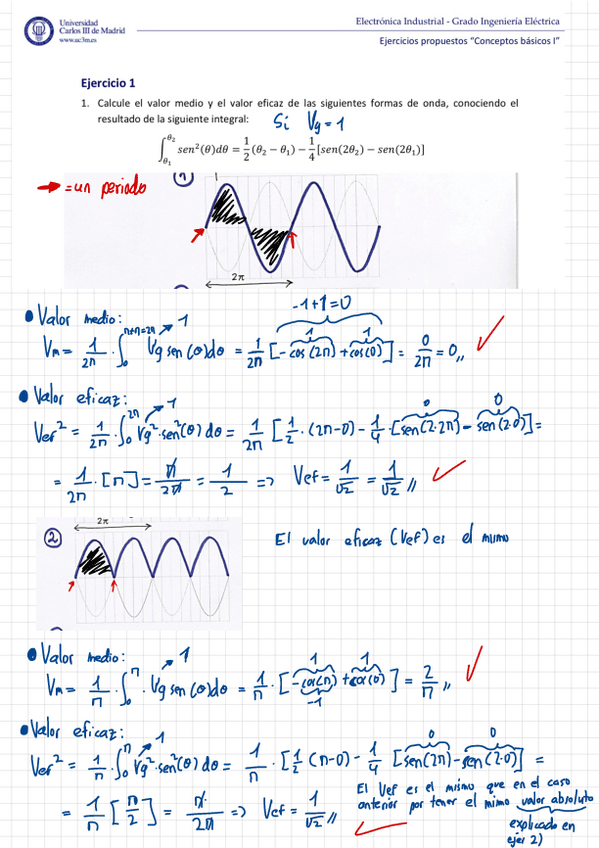 Universidad
Carlos III de Madrid
www.uc3m.es
Electrónica Industrial - Grado Ingeniería Eléctrica
Ejercicios propuestos "Conceptos básicos I"
Ejercicio 1
1. Calcule el valor medio y el valor eficaz de las siguientes formas de onda, conociendo el
resultado de la siguiente integral: Si Vg = 1
∫θ₁^θ₂ sen²(θ)dθ = 1/2 (θ₂ − θ₁) − 1/4 [sen(2θ₂) − sen(2θ₁)]
→ = un periodo
1
2π
-1+1=0
• Valor medio:
Vm = 1/2π · ∫₀^(π+π=2π) Vg sen(θ)dθ = 1/2π [-cos(2π) + cos(0)] = 0/2π = 0,, ✓
• Valor eficaz:
Vef² = 1/2π · ∫₀^2π Vg² · sen²(θ) dθ = 1/2π [1/2 · (2π-0) - 1/4 · [sen(2·2π) - sen(2·0)] =
= 1/2π · [π] = π/2π = 1/2 => Vef = 1/√2 = 1/√2 ,, ✓
2π
2
El valor eficaz (Vef) es el mismo
• Valor medio:
Vm = 1/π · ∫₀^π · Vg sen(θ)dθ = 1/π · [-cos(π) + cos(0)] = 2/π ,, ✓
• Valor eficaz:
Vef² = 1/π · ∫₀^π Vg² · sen²(θ) dθ = 1/π · [1/2 (π-0) - 1/4 [sen(2π) - sen(2·0)] =
= 1/π [π/2] = π/2π => Vef = 1/√2 ,, ✓
El Vef es el mismo que en el caso
anterior por tener el mimo valor absoluto
explicado en
ejer 2)